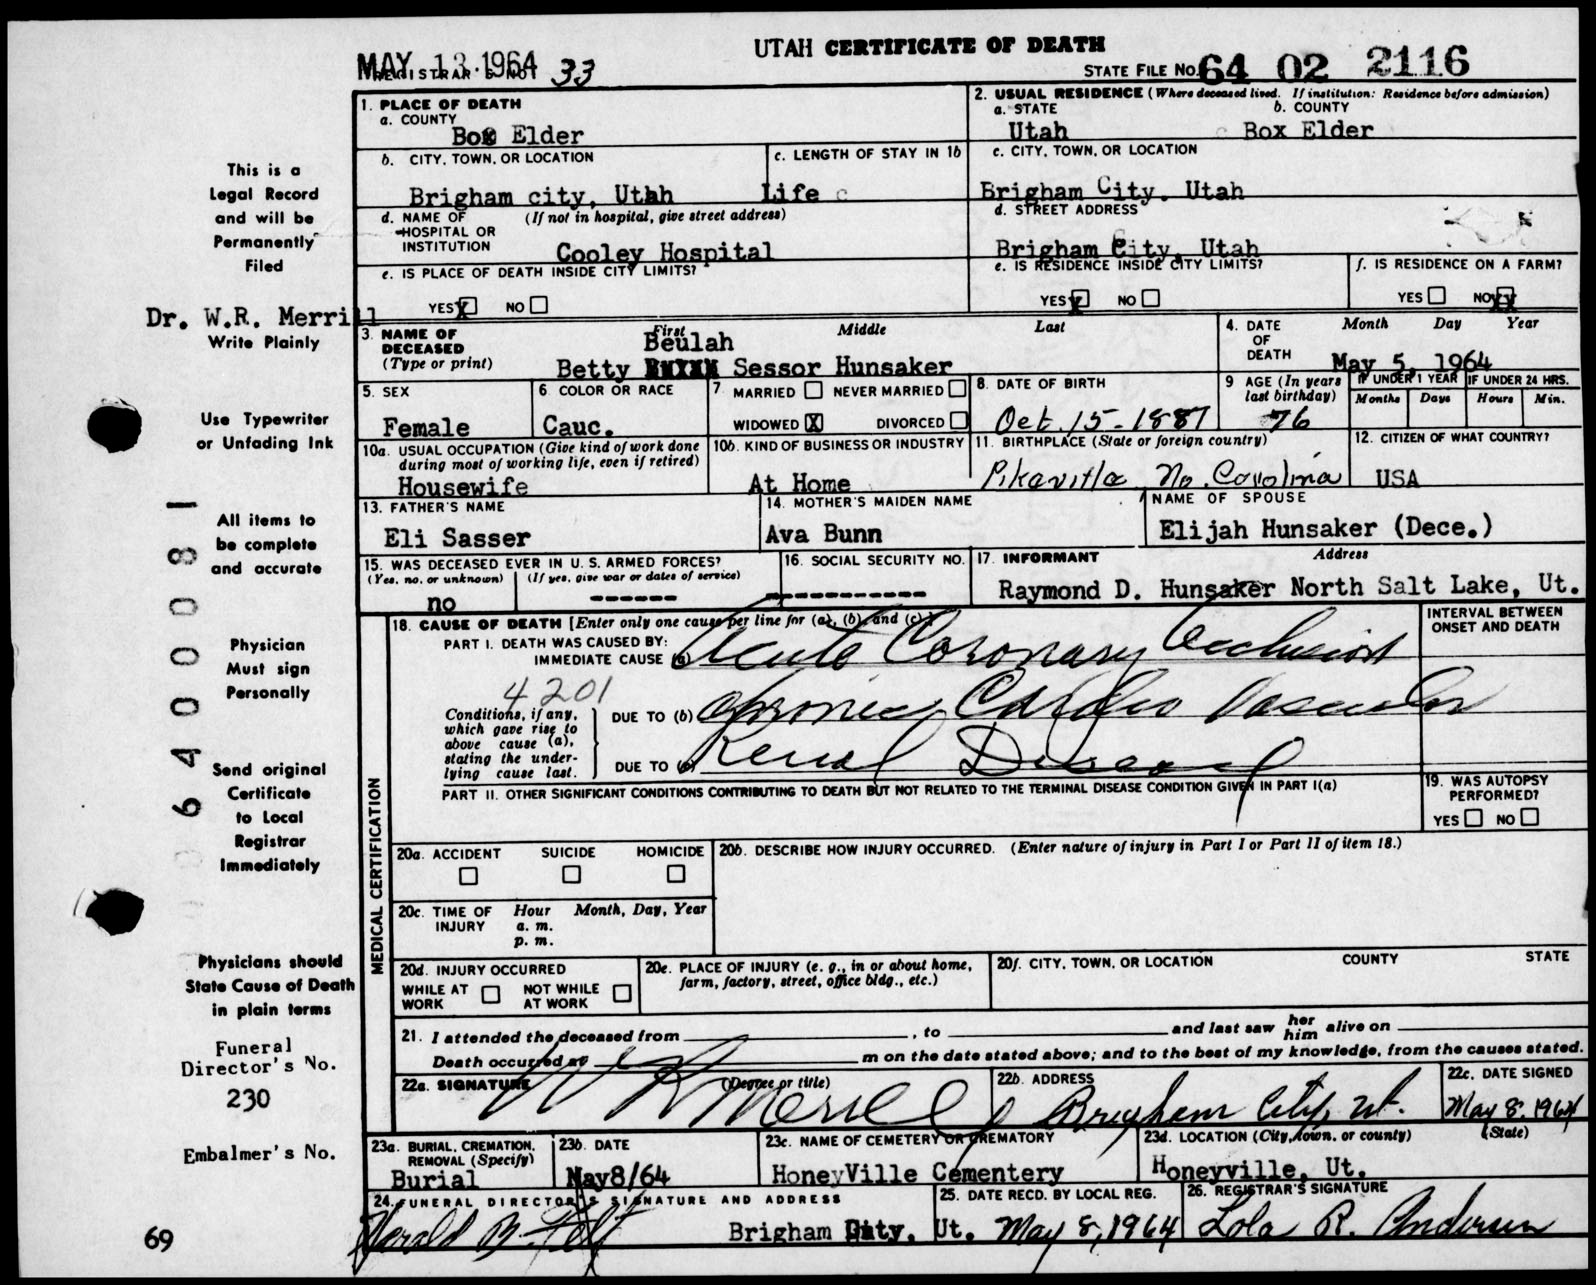 UTAH CERTIFICATE OF DEATH
MAY 13 1964
REGISTRAR'S NO. 33
STATE FILE NO. 64 02 2116
1. PLACE OF DEATH
a. COUNTY
Box Elder
2. USUAL RESIDENCE (Where deceased lived. If institution: Residence before admission)
a. STATE b. COUNTY
Utah Box Elder
b. CITY, TOWN, OR LOCATION
Brigham city, Utah
c. LENGTH OF STAY IN 1b
Life
c. CITY, TOWN, OR LOCATION
Brigham City. Utah
d. NAME OF HOSPITAL OR INSTITUTION (If not in hospital, give street address)
Cooley Hospital
d. STREET ADDRESS
Brigham City, Utah
e. IS PLACE OF DEATH INSIDE CITY LIMITS?
YES X NO
e. IS RESIDENCE INSIDE CITY LIMITS?
YES X NO
f. IS RESIDENCE ON A FARM?
YES NO XX
This is a
Legal Record
and will be
Permanently
Filed
Dr. W.R. Merrill
Write Plainly
Use Typewriter
or Unfading Ink
All items to
be complete
and accurate
Physician
Must sign
Personally
Send original
Certificate
to Local
Registrar
Immediately
Physicians should
State Cause of Death
in plain terms
Funeral
Director's No.
230
Embalmer's No.
69
64000081
3. NAME OF DECEASED (Type or print)
First Middle Last
Beulah
Betty Sessor Hunsaker
4. DATE OF DEATH
Month Day Year
May 5, 1964
5. SEX
Female
6. COLOR OR RACE
Cauc.
7. MARRIED NEVER MARRIED
WIDOWED X DIVORCED
8. DATE OF BIRTH
Oct. 15-1887
9 AGE (In years last birthday)
76
IF UNDER 1 YEAR IF UNDER 24 HRS.
Months Days Hours Min.
10a. USUAL OCCUPATION (Give kind of work done during most of working life, even if retired)
Housewife
10b. KIND OF BUSINESS OR INDUSTRY
At Home
11. BIRTHPLACE (State or foreign country)
Pikeville No. Carolina
12. CITIZEN OF WHAT COUNTRY?
USA
13. FATHER'S NAME
Eli Sasser
14. MOTHER'S MAIDEN NAME
Ava Bunn
NAME OF SPOUSE
Elijah Hunsaker (Dece.)
15. WAS DECEASED EVER IN U. S. ARMED FORCES?
(Yes, no, or unknown) (If yes, give war or dates of service)
no ------
16. SOCIAL SECURITY NO.
-----------
17. INFORMANT Address
Raymond D. Hunsaker North Salt Lake, Ut.
18. CAUSE OF DEATH [Enter only one cause per line for (a), (b), and (c).]
INTERVAL BETWEEN ONSET AND DEATH
PART I. DEATH WAS CAUSED BY:
IMMEDIATE CAUSE (a) Acute Coronary Occlusion
4201
Conditions, if any, which gave rise to above cause (a), stating the underlying cause last.
DUE TO (b) Chronic Cardio Vascular
DUE TO (c) Renal Disease
PART II. OTHER SIGNIFICANT CONDITIONS CONTRIBUTING TO DEATH BUT NOT RELATED TO THE TERMINAL DISEASE CONDITION GIVEN IN PART I(a)
19. WAS AUTOPSY PERFORMED?
YES NO
MEDICAL CERTIFICATION
20a. ACCIDENT SUICIDE HOMICIDE
20b. DESCRIBE HOW INJURY OCCURRED. (Enter nature of injury in Part I or Part II of item 18.)
20c. TIME OF INJURY Hour Month, Day, Year
a. m.
p. m.
20d. INJURY OCCURRED
WHILE AT WORK NOT WHILE AT WORK
20e. PLACE OF INJURY (e. g., in or about home, farm, factory, street, office bldg., etc.)
20f. CITY, TOWN, OR LOCATION COUNTY STATE
21. I attended the deceased from , to and last saw her him alive on
Death occurred at m on the date stated above; and to the best of my knowledge, from the causes stated.
22a. SIGNATURE (Degree or title)
W R Merrill
22b. ADDRESS
Brigham City, Ut.
22c. DATE SIGNED
May 8, 1964
23a. BURIAL, CREMATION, REMOVAL (Specify)
Burial
23b. DATE
May8/64
23c. NAME OF CEMETERY OR CREMATORY
HoneyVille Cementery
23d. LOCATION (City, town, or county) (State)
Honeyville, Ut.
24. FUNERAL DIRECTOR'S SIGNATURE AND ADDRESS
Harold B. Felt Brigham City, Ut.
25. DATE RECD. BY LOCAL REG.
May 8, 1964
26. REGISTRAR'S SIGNATURE
Lola R. Andersen